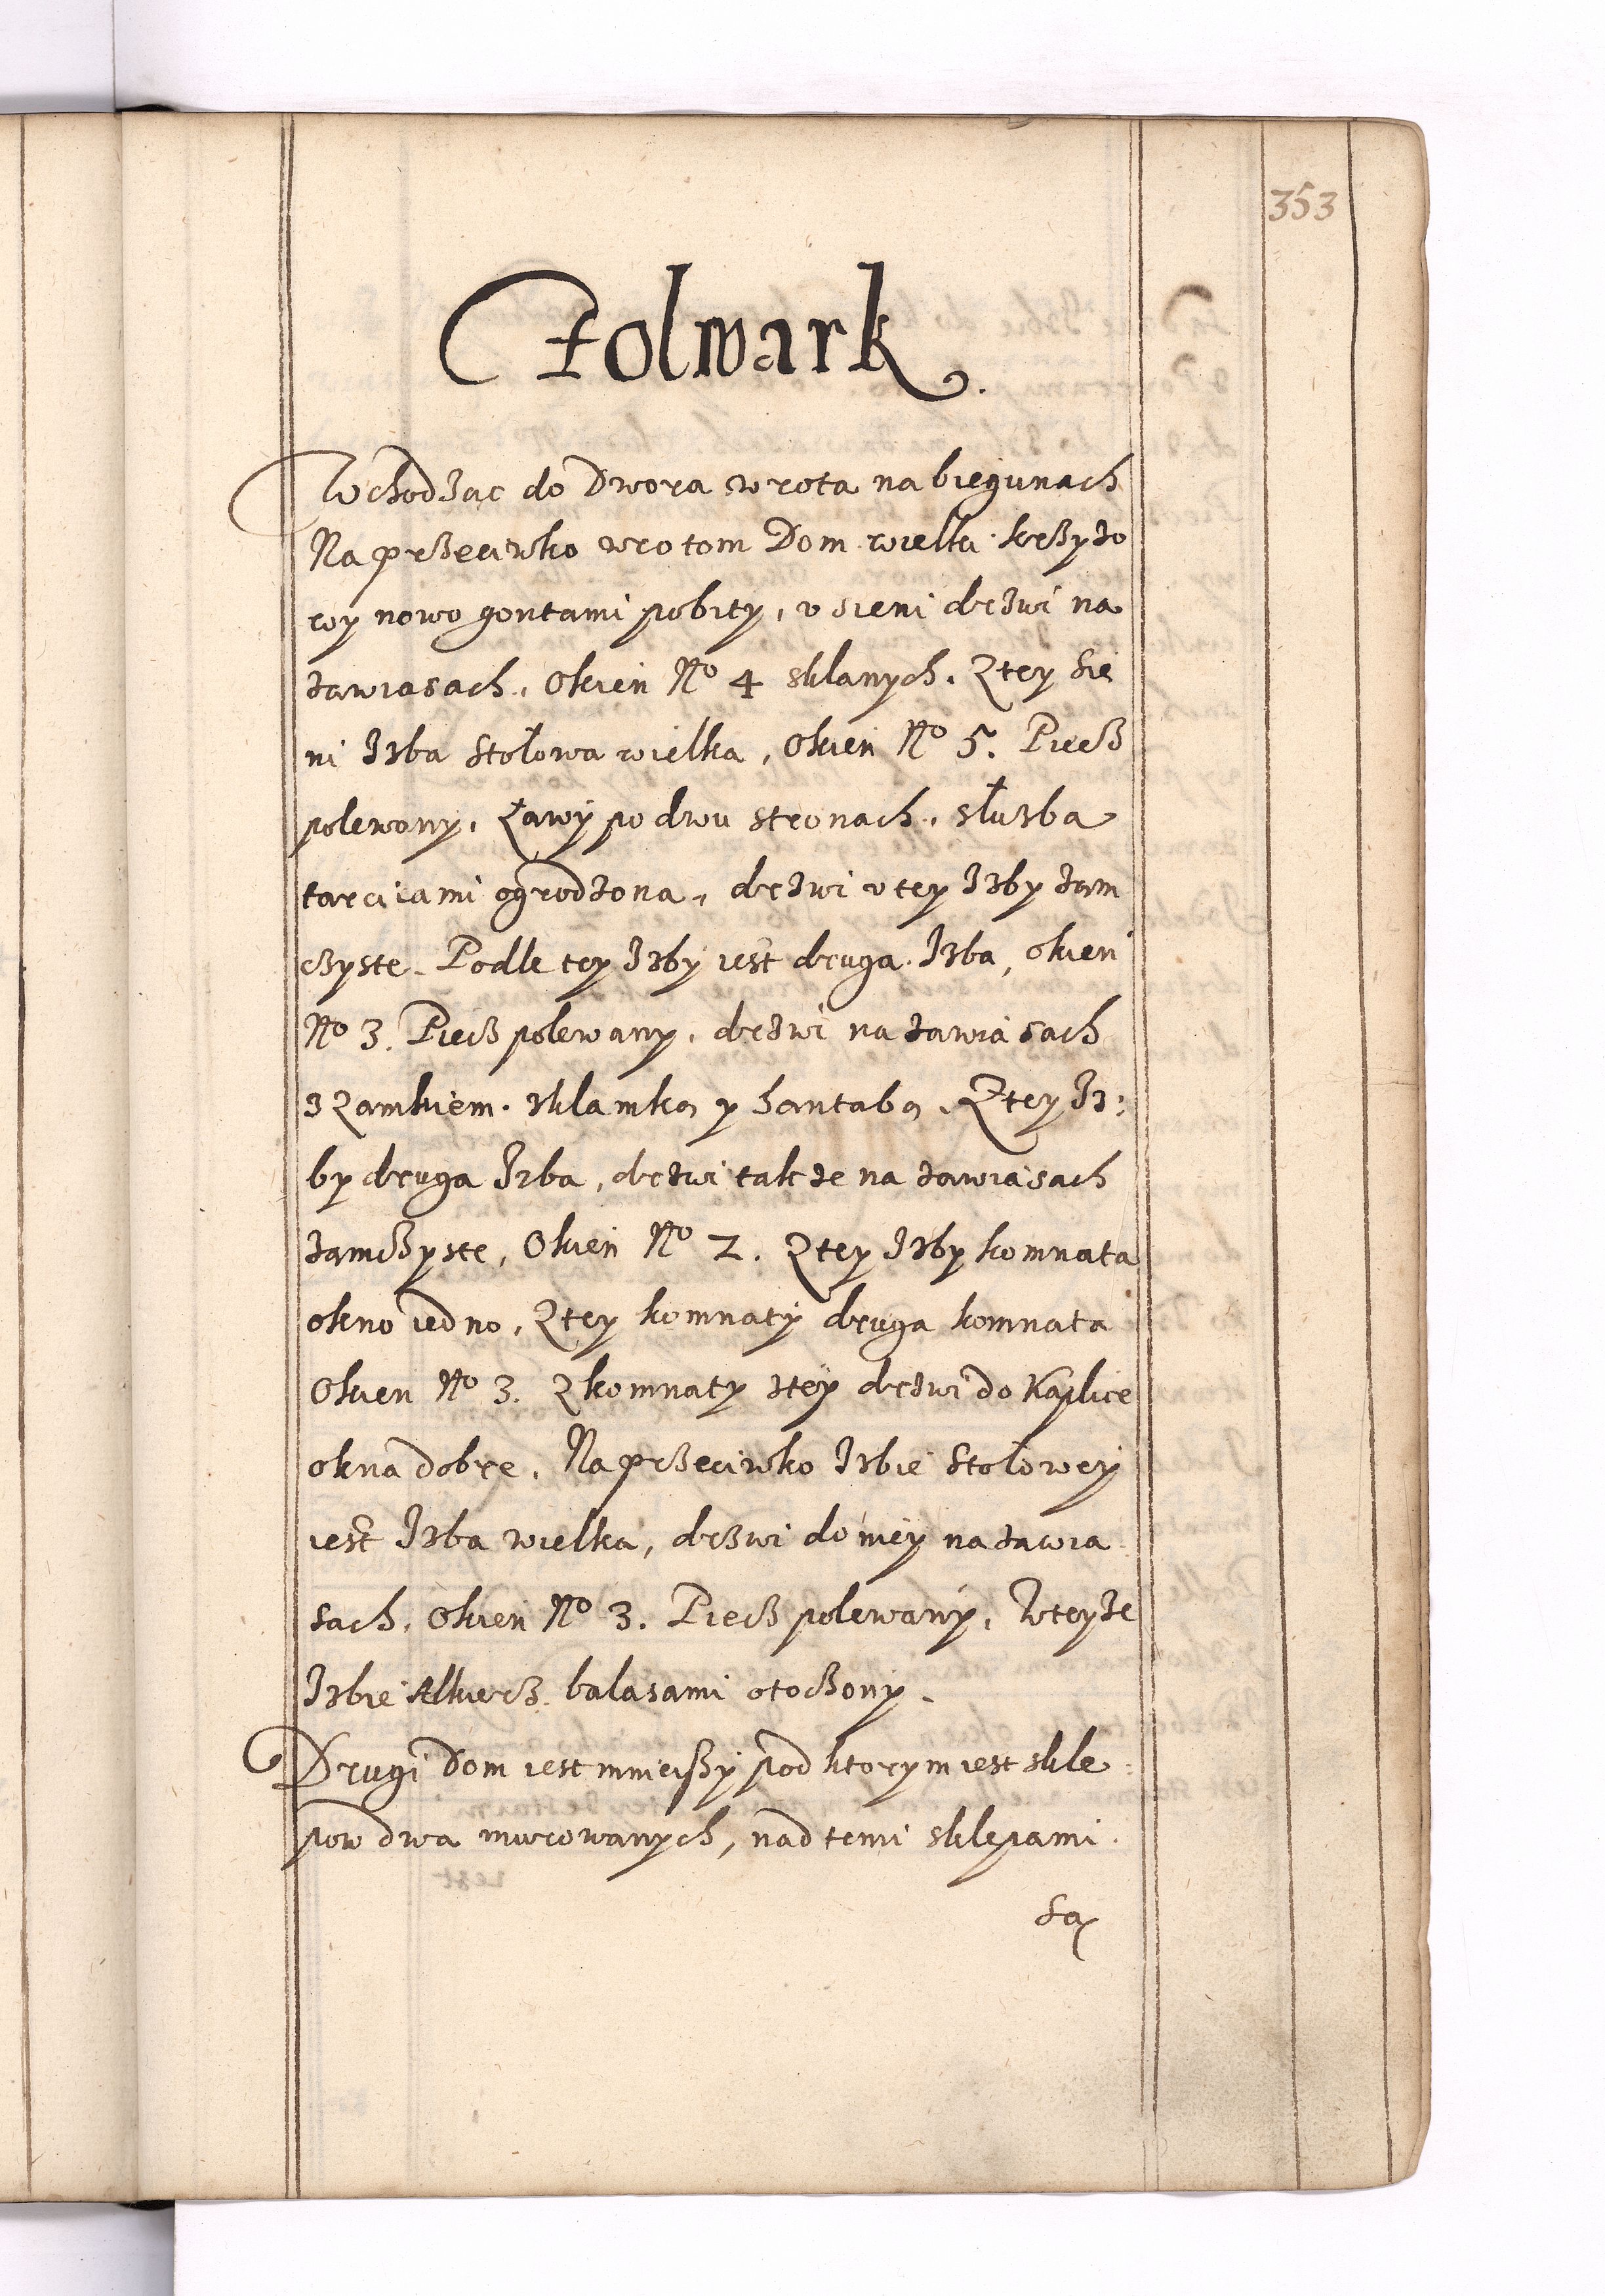 353
Folwark.
Wchodząc do Dwora wrota na biegunach
Na przeciwko wrotom Dom wielki krzyżo
wy nowo gontami pobity, v sieni drzwi na
zawiasach, Okien No 4 sklanych. Z tey sie
ni Izba Stołowa wielka, Okien No 5. Piecz
polewany, Ławy po dwu stronach, służba
tarcicami ogrodzona, drzwi v tey Izby zam
czyste. Podle tey Izby iest druga Izba, okien
No 3. Piecz polewany, drzwi na zawiasach
z Zamkiem. zklamką y hantabą. Z tey Iz:
by druga Izba, drzwi takze na zawiasach
zamczyste, Okien No 2. Z tey Izby komnata
okno iedno, Z tey komnaty druga komnata
Okien No 3. Z komnaty ztey drzwi do Kaplice
okna dobre. Na przeciwko Izbie Stołowey
iest Izba wielka, drzwi do niey na zawia
sach, Okien No 3. Piecz polewany, W teyze
Izbie Alkierz balasami otoczony.
Drugi Dom iest mnieiszy pod ktorym iest skle:
pow dwa murowanych, nad temi sklepami
Są